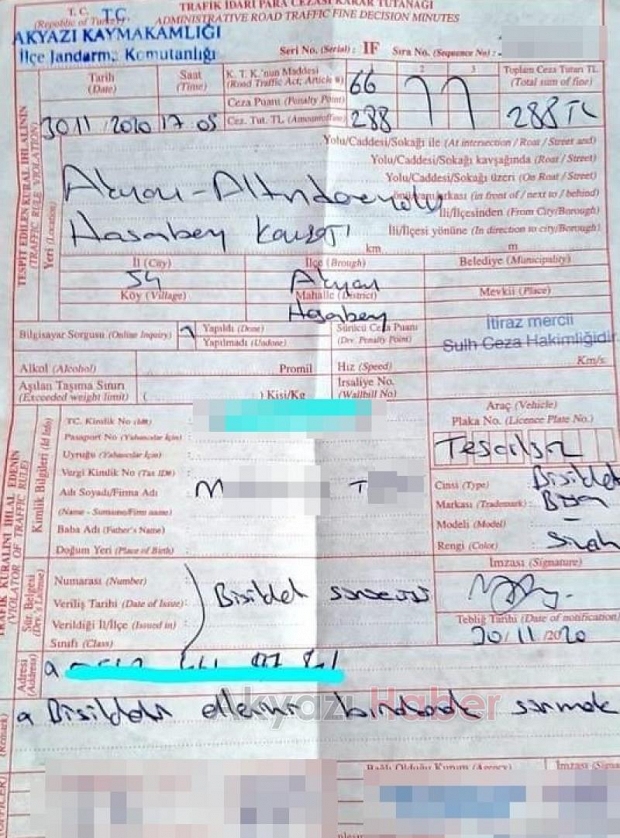 TRAFİK İDARİ PARA CEZASI KARAR TUTANAĞI
T. C. TC
(Republic of Turkey)
ADMINISTRATIVE ROAD TRAFFIC FINE DECISION MINUTES
AKYAZI KAYMAKAMLIĞI
İlçe Jandarma Komutanlığı
Seri No. (Serial) : IF Sıra No. (Sequence No) :
Tarih
(Date)
Saat
(Time)
K. T. K.'nun Maddesi
(Road Traffic Act; Article #)
66
2
3
Toplam Ceza Tutarı TL
(Total sum of fine)
Ceza Puanı (Penalty Point)
30 11 2020 17 05
Cez. Tut. TL
288
288 TL
TESPİT EDİLEN KURAL İHLALİNİN
(TRAFFIC RULE VIOLATION)
Yeri (Location)
Yolu/Caddesi/Sokağı ile (At intersection / Roat / Street and)
Yolu/Caddesi/Sokağı kavşağında (Roat / Street)
Yolu/Caddesi/Sokağı üzeri (On Roat / Street)
(in front of / next to / behind)
İli/İlçesinden (From City/Borough)
İli/İlçesi yönüne (In direction to city/Borough)
Hasanbey
km m
İl (City)
54
İlçe (Brough)
Akyazı
Belediye (Municipality)
Köy (Village)
Mahalle (District)
Hasanbey
Mevkii (Place)
Bilgisayar Sorgusu (Online Inquiry)
Yapıldı (Done)
Yapılmadı (Undone)
Sürücü Ceza Puanı
(Drv. Penalty Point)
İtiraz mercii
Sulh Ceza Hakimliğidir
Alkol (Alcohol) Promil
Hız (Speed) Km/s.
Aşılan Taşıma Sınırı
(Exceeded weight limit) ( ) Kişi/Kg
İrsaliye No.
(Wallbill No)
TRAFİK KURALINI İHLAL EDENİN
(VIOLATOR OF TRAFFIC RULE)
Kimlik Bilgileri (Id Info)
TC. Kimlik No (Id#) :
Pasaport No (Yabancılar İçin) :
Uyruğu (Yabancılar İçin) :
Vergi Kimlik No (Tax ID#) :
Adı Soyadı/Firma Adı
M T
(Name - Surname/Firm name)
Baba Adı (Father's Name) :
Doğum Yeri (Place of Birth) :
Araç (Vehicle)
Plaka No. (Licence Plate No.)
Tescilsiz
Cinsi (Type) : Bisiklet
Markası (Trademark) :
Modeli (Model) : —
Rengi (Color) : Siyah
İmzası (Signature)
Tebliğ Tarihi (Date of notification)
30/11/2020
Sür. Belgesi
(Drv.'s License)
Numarası (Number)
Veriliş Tarihi (Date of Issue)
Verildiği İl/İlçe (Issued in)
Sınıfı (Class)
Bisiklet sürücüsü
Adresi
(Address)
Akyazı Haber
Bisikletin ellerini bırakarak sürmek
(Remark)
Bağlı Olduğu Kurum (Agency)